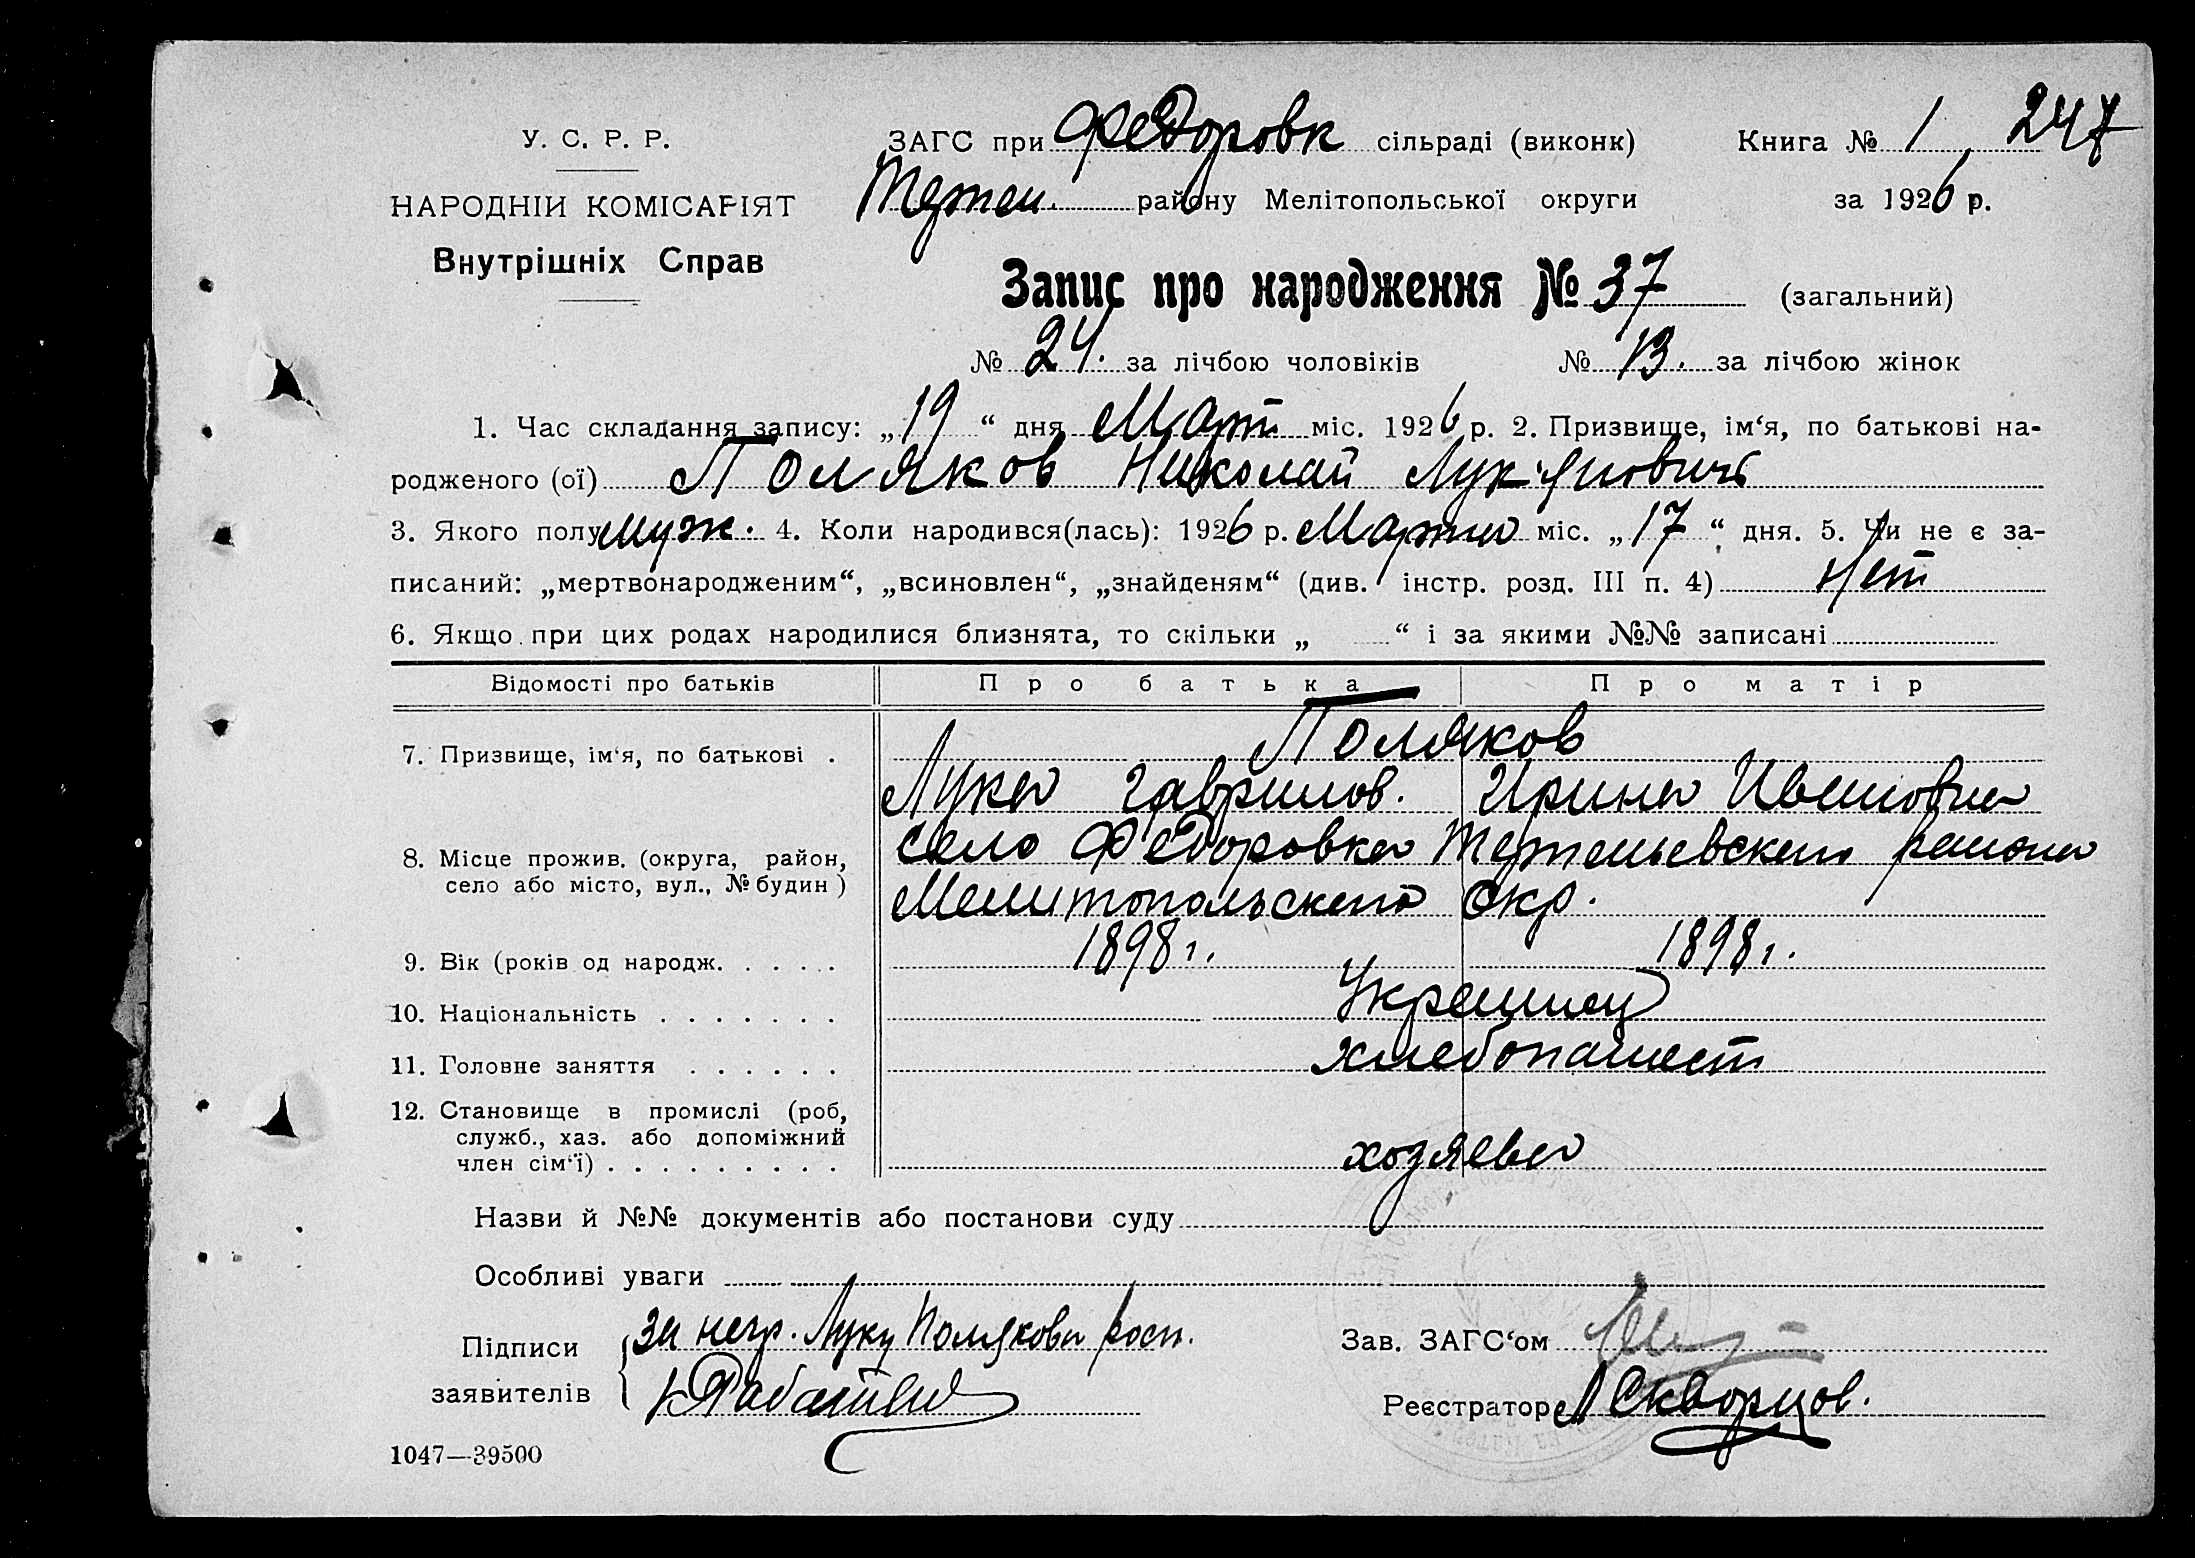 У. С. Р. Р.
НАРОДНІЙ КОМІСАРІЯТ
Внутрішніх Справ
ЗАГС при Федоровк сільраді (виконк)
Терпен. району Мелітопольської округи
Книга № 1 247
за 1926 р.
Запис про народження № 37 (загальний)
№ 24. за лічбою чоловіків № 13. за лічбою жінок
1. Час складання запису: „19“ дня Март міс. 1926 р. 2. Призвище, ім‘я, по батькові на-
родженого (ої) Поляков Николай Лук'янович
3. Якого полу муж. 4. Коли народився(лась): 1926 р. Марта міс. „17“ дня. 5. Чи не є за-
писаний: „мертвонародженим“, „всиновлен“, „знайденям“ (див. інстр. розд. III п. 4) Нет
6. Якщо при цих родах народилися близнята, то скільки „ “ і за якими №№ записані
Відомості про батьків Про батька Про матір
7. Призвище, ім‘я, по батькові . Поляков
Лука Гаврилов. Ирина Ивановна
8. Місце прожив. (округа, район,
село або місто, вул., № будин )
село Федоровка Терпеньевского района
Мелитопольского окр.
9. Вік (років од народж. . . . . . 1898 г. 1898 г.
10. Національність . . . . . . . Украинец
11. Головне заняття . . . . . . хлебопашест
12. Становище в промислі (роб,
служб., хаз. або допоміжний
член сім‘ї) . . . . . . . . . хозяева
Назви й №№ документів або постанови суду
Особливі уваги
Підписи
заявителів
за негр. Луку Полякова росп.
Зав. ЗАГС‘ом
Реєстратор Скворцов.
1047—39500